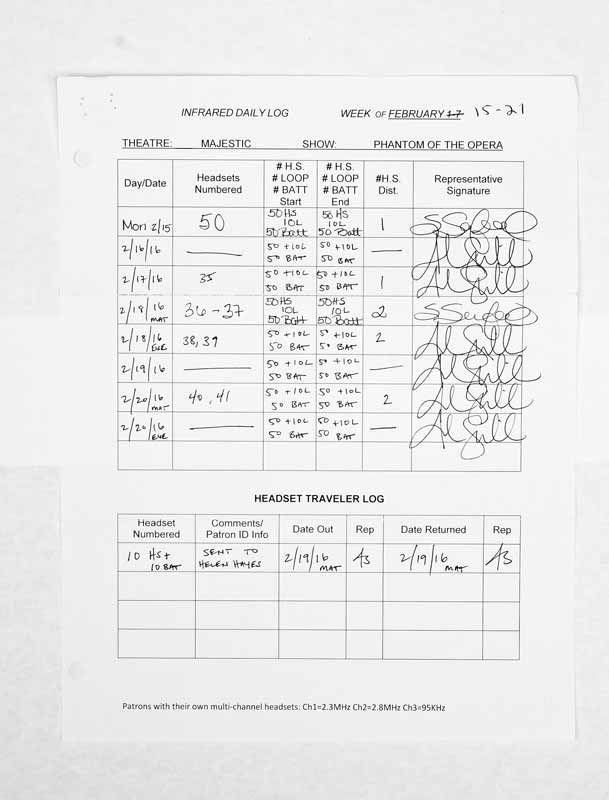 INFRARED DAILY LOG WEEK OF FEBRUARY 17 15-21
THEATRE: MAJESTIC SHOW: PHANTOM OF THE OPERA
Day/Date
Headsets
Numbered
# H.S.
# LOOP
# BATT
Start
# H.S.
# LOOP
# BATT
End
#H.S.
Dist.
Representative
Signature
Mon 2/15
50
50 HS
10L
50 Batt
50 HS
10L
50 Batt
1
2/16/16
—
50 +10L
50 BAT
50 +10L
50 BAT
—
2/17/16
35
50 +10L
50 BAT
50 +10L
50 BAT
1
2/18/16
MAT
36-37
50HS
10L
50 Batt
50HS
10L
50 Batt
2
2/18/16
EVE
38, 39
50 +10L
50 BAT
50 +10L
50 BAT
2
2/19/16
—
50 +10L
50 BAT
50 +10L
50 BAT
—
2/20/16
MAT
40, 41
50 +10L
50 BAT
50 +10L
50 BAT
2
2/20/16
EVE
—
50 +10L
50 BAT
50 +10L
50 BAT
—
HEADSET TRAVELER LOG
Headset
Numbered
Comments/
Patron ID Info
Date Out
Rep
Date Returned
Rep
10 HS+
10 BAT
SENT TO
HELEN HAYES
2/19/16
MAT
2/19/16
MAT
Patrons with their own multi-channel headsets: Ch1=2.3MHz Ch2=2.8MHz Ch3=95KHz